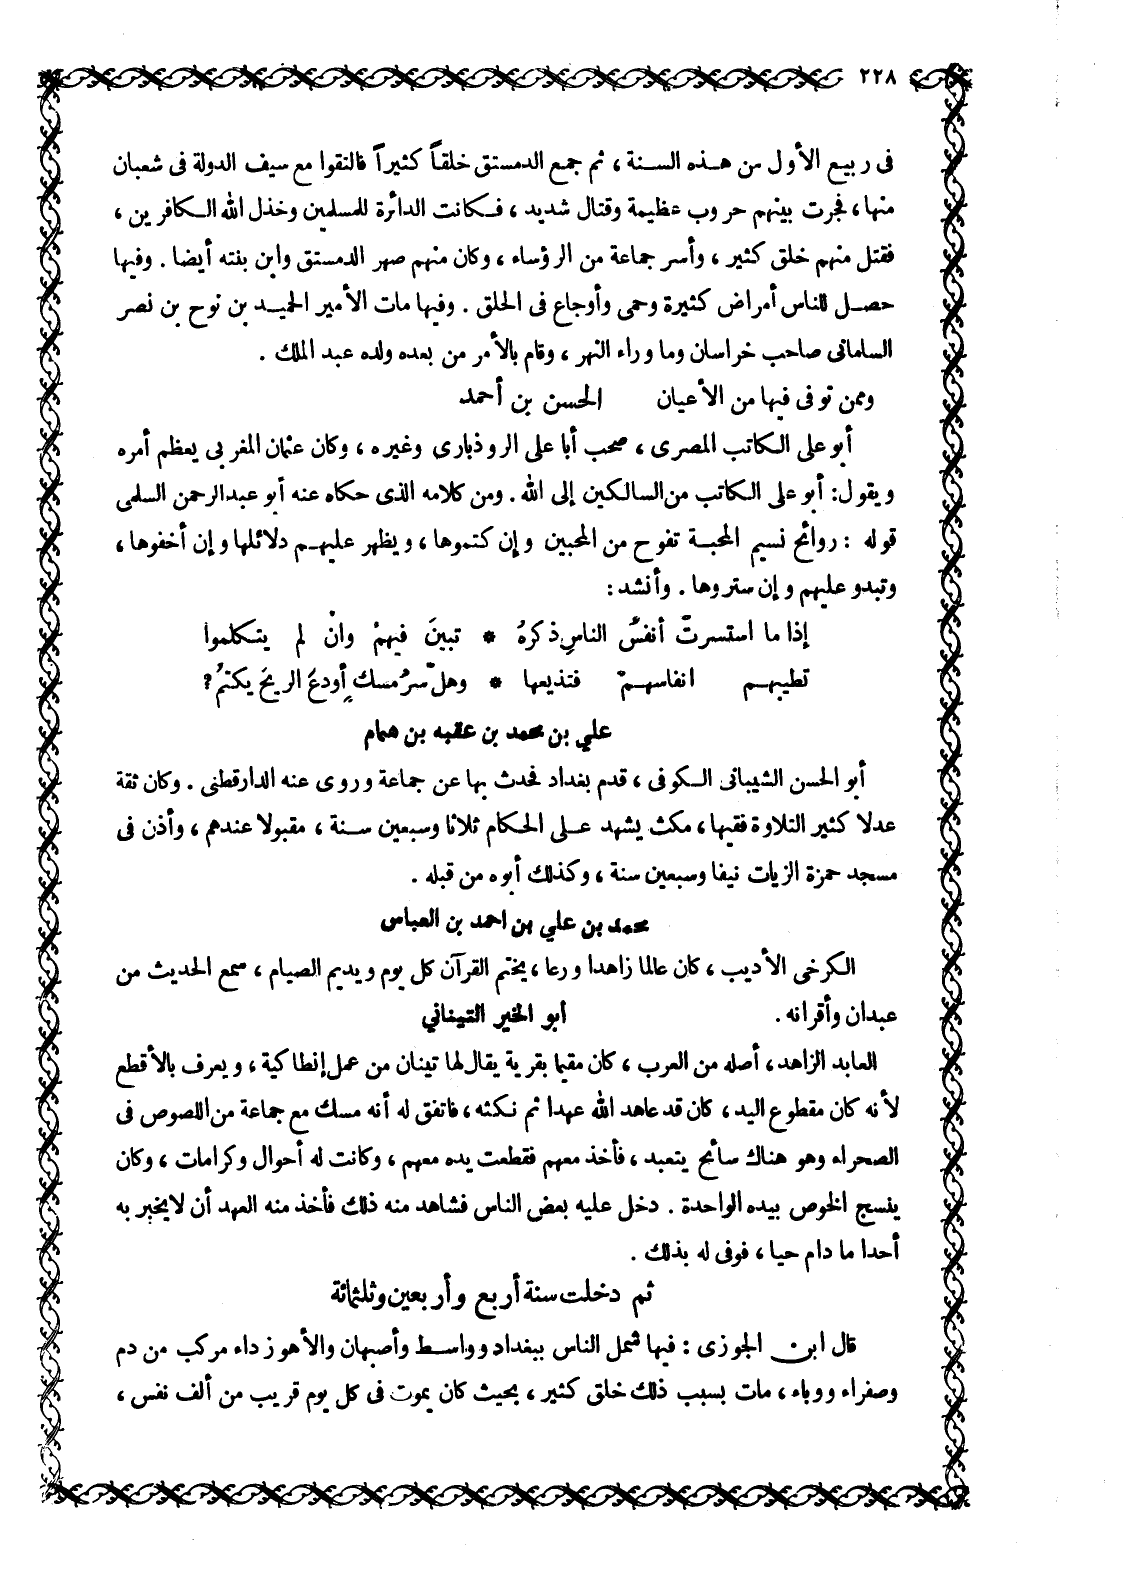 ٢٢٨
فى ربيع الأول من هذه السنة ، ثم جمع الدمستق خلقاً كثيراً فالتقوا مع سيف الدولة فى شعبان
منها ، فجرت بينهم حروب عظيمة وقتال شديد ، فكانت الدائرة للمسلمين وخذل الله الكافرين ،
فقتل منهم خلق كثير ، وأسر جماعة من الرؤساء ، وكان منهم صهر الدمستق وابن بنته أيضا . وفيها
حصل للناس أمراض كثيرة وحمى وأوجاع فى الحلق . وفيها مات الأمير الحميد بن نوح بن نصر
السامانى صاحب خراسان وما وراء النهر ، وقام بالأمر من بعده ولده عبد الملك .
وممن توفى فيها من الأعيان الحسن بن أحمد
أبو على الكاتب المصرى ، صحب أبا على الروذبارى وغيره ، وكان عثمان المغربى يعظم أمره
ويقول: أبو على الكاتب من السالكين إلى الله . ومن كلامه الذى حكاه عنه أبو عبدالرحمن السلمى
قوله : روائح نسيم المحبة تفوح من المحبين وإن كتموها ، ويظهر عليهم دلائلها وإن أخفوها ،
وتبدو عليهم وإن ستروها . وأنشد :
إذا ما استسرتْ أنفسُ الناسِ ذكرهُ * تبينَ فيهمْ وانْ لم يتكلموا
تطيبهم انفاسهمْ فتذيعها * وهل سرُ مسكٍ أودعَ الريحَ يكتمُ؟
علي بن محمد بن عقبه بن همام
أبو الحسن الشيبانى الكوفى ، قدم بغداد فحدث بها عن جماعة وروى عنه الدارقطنى . وكان ثقة
عدلا كثير التلاوة فقيها ، مكث يشهد على الحكام ثلاثا وسبعين سنة ، مقبولا عندهم ، وأذن فى
مسجد حمزة الزيات نيفا وسبعين سنة ، وكذلك أبوه من قبله .
محمد بن علي بن احمد بن العباس
الكرخى الأديب ، كان عالما زاهدا ورعا ، يختم القرآن كل يوم ويديم الصيام ، سمع الحديث من
عبدان وأقرانه . أبو الخير التيناني
العابد الزاهد ، أصله من العرب ، كان مقيما بقرية يقال لها تينان من عمل إنطاكية ، ويعرف بالأقطع
لأنه كان مقطوع اليد ، كان قد عاهد الله عهدا ثم نكثه ، فاتفق له أنه مسك مع جماعة من اللصوص فى
الصحراء وهو هناك سائح يتعبد ، فأخذ معهم فقطعت يده معهم ، وكانت له أحوال وكرامات ، وكان
ينسج الخوص بيده الواحدة . دخل عليه بعض الناس فشاهد منه ذلك فأخذ منه العهد أن لا يخبر به
أحدا ما دام حيا ، فوفى له بذلك .
ثم دخلت سنة أربع وأربعين وثلثمائة
قال ابن الجوزى : فيها شمل الناس ببغداد وواسط وأصبهان والأهوز داء مركب من دم
وصفراء ووباء ، مات بسبب ذلك خلق كثير ، بحيث كان يموت فى كل يوم قريب من ألف نفس ،